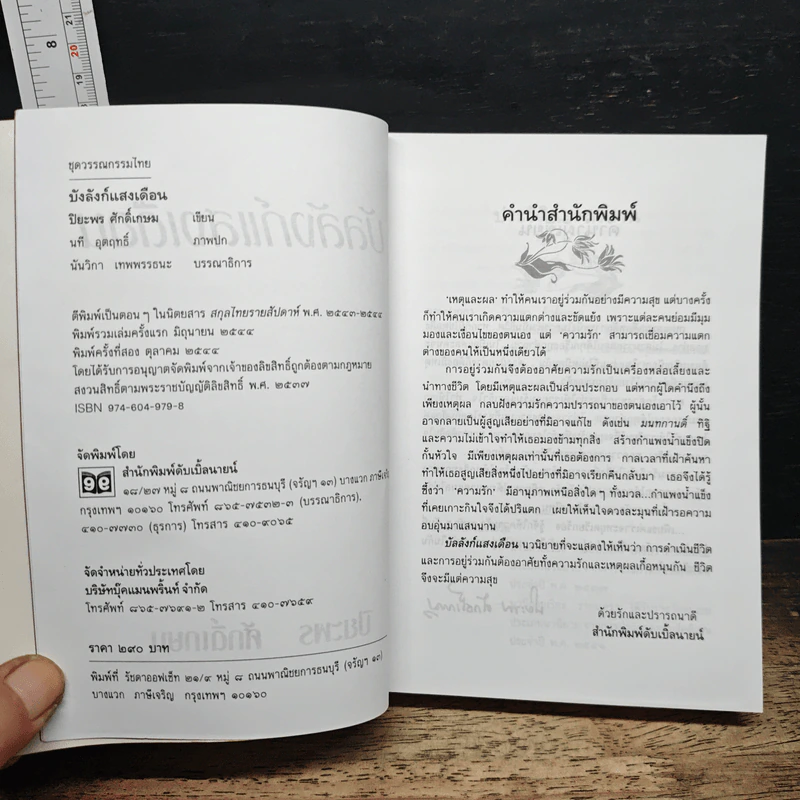 8
21
20
19
ชุดวรรณกรรมไทย
บังลังก์แสงเดือน
ปิยะพร ศักดิ์เกษม เขียน
นที อุตฤทธิ์ ภาพปก
นันวิกา เทพพรรธนะ บรรณาธิการ
ตีพิมพ์เป็นตอนๆ ในนิตยสาร สกุลไทยรายสัปดาห์ พ.ศ. ๒๕๔๓-๒๕๔๔
พิมพ์รวมเล่มครั้งแรก มิถุนายน ๒๕๔๔
พิมพ์ครั้งที่สอง ตุลาคม ๒๕๔๔
โดยได้รับการอนุญาตจัดพิมพ์จากเจ้าของลิขสิทธิ์ถูกต้องตามกฎหมาย
สงวนสิทธิ์ตามพระราชบัญญัติลิขสิทธิ์ พ.ศ. ๒๕๓๗
ISBN 974-604-979-8
จัดพิมพ์โดย
สำนักพิมพ์ดับเบิ้ลนายน์
๑๘/๒๗ หมู่ ๘ ถนนพาณิชยการธนบุรี (จรัญฯ ๑๓) บางแวก ภาษีเจริญ
กรุงเทพฯ ๑๐๑๖๐ โทรศัพท์ ๘๖๕-๗๕๓๒-๓ (บรรณาธิการ),
๔๑๐-๗๗๓๐ (ธุรการ) โทรสาร ๔๑๐-๙๐๖๕
จัดจำหน่ายทั่วประเทศโดย
บริษัทบุ๊คแมนพริ้นท์ จำกัด
โทรศัพท์ ๘๖๕-๗๖๙๑-๒ โทรสาร ๔๑๐-๗๖๕๙
ราคา ๒๙๐ บาท
พิมพ์ที่ รัชดาออฟเซ็ท ๒๑/๙ หมู่ ๘ ถนนพาณิชยการธนบุรี (จรัญฯ ๑๓)
บางแวก ภาษีเจริญ กรุงเทพฯ ๑๐๑๖๐
คำนำสำนักพิมพ์
'เหตุและผล' ทำให้คนเราอยู่ร่วมกันอย่างมีความสุข แต่บางครั้ง
ก็ทำให้คนเราเกิดความแตกต่างและขัดแย้ง เพราะแต่ละคนย่อมมีมุม
มองและเงื่อนไขของตนเอง แต่ 'ความรัก' สามารถเชื่อมความแตก
ต่างของคนให้เป็นหนึ่งเดียวได้
การอยู่ร่วมกันจึงต้องอาศัยความรักเป็นเครื่องหล่อเลี้ยงและ
นำทางชีวิต โดยมีเหตุและผลเป็นส่วนประกอบ แต่หากผู้ใดคำนึงถึง
เพียงเหตุผล กลบฝังความรักความปรารถนาของตนเองเอาไว้ ผู้นั้น
อาจกลายเป็นผู้สูญเสียอย่างที่มิอาจแก้ไข ดังเช่น มนทกานติ์ ทิฐิ
และความไม่เข้าใจทำให้เธอมองข้ามทุกสิ่ง สร้างกำแพงน้ำแข็งปิด
กั้นหัวใจ มีเพียงเหตุผลเท่านั้นที่เธอต้องการ กาลเวลาที่เฝ้าค้นหา
ทำให้เธอสูญเสียสิ่งหนึ่งไปอย่างที่มิอาจเรียกคืนกลับมา เธอจึงได้รู้
ซึ้งว่า 'ความรัก' มีอานุภาพเหนือสิ่งใดๆ ทั้งมวล...กำแพงน้ำแข็ง
ที่เคยเกาะกินใจจึงได้ปริแตก เผยให้เห็นใจดวงละมุนที่เฝ้ารอความ
อบอุ่นมาแสนนาน
บัลลังก์แสงเดือน นวนิยายที่จะแสดงให้เห็นว่า การดำเนินชีวิต
และการอยู่ร่วมกันต้องอาศัยทั้งความรักและเหตุผลเกื้อหนุนกัน ชีวิต
จึงจะมีแต่ความสุข
ด้วยรักและปรารถนาดี
สำนักพิมพ์ดับเบิ้ลนายน์